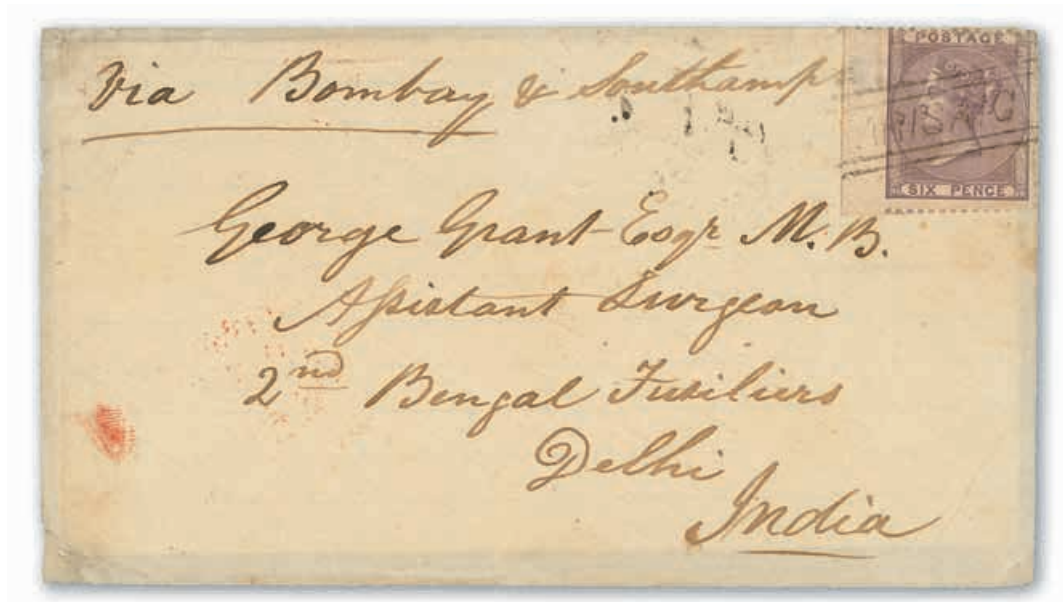 via Bombay & Southamp
POSTAGE
SIX PENCE
George Grant Esqr M.B.
Assistant Surgeon
2nd Bengal Fusiliers
Delhi
India